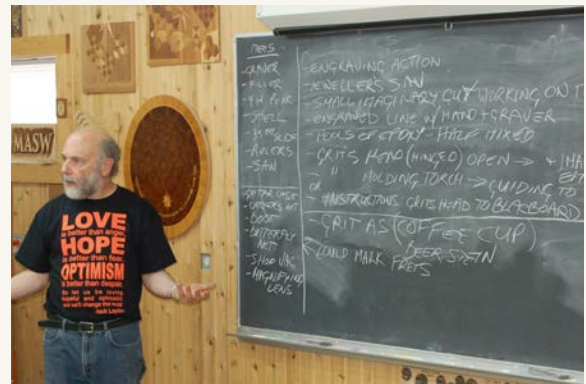 MASW
LOVE
is better than anger.
HOPE
is better than fear.
OPTIMISM
is better than despair.
So let us be loving,
hopeful and optimistic
and we'll change the world.
Jack Layton
-GRAVER
-FILLER
-SHELL
-RULERS
-SAW
-GUITAR CASE
-BOOK
-BUTTERFLY
NET
-SHOP VAC
-MAGNIFYING
LENS
-ENGRAVING ACTION
-JEWELLER'S SAW
-SMALL IMAGINARY GUY WORKING ON
-ENGRAVED LINE W/ HAND + GRAVER
-POOLS OF EPOXY - HALF MIXED
-GRIT'S HEAD (HINGED) OPEN →
" HOLDING TORCH → GUIDING TO
OR
INSTRUCTIONS GRIT'S HEAD TO BLACKBOARD
-GRIT AS (COFFEE CUP)
BEER STEIN
COULD MARK FRETS